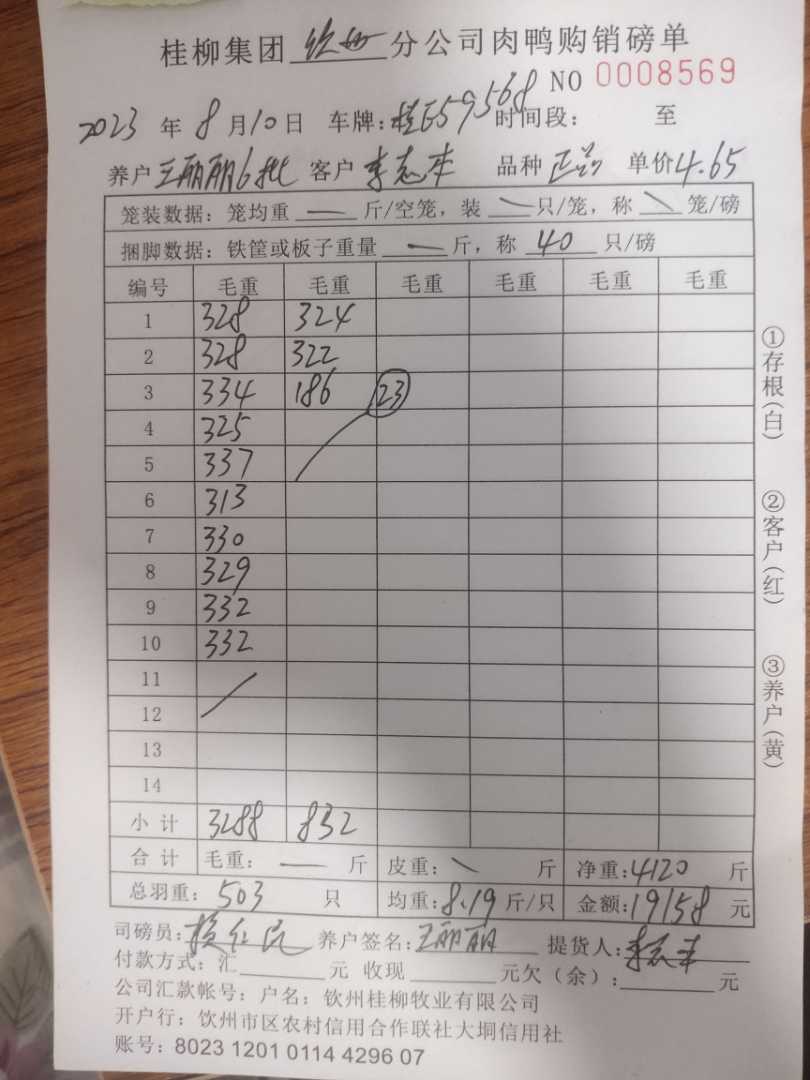 桂柳集团 钦州 分公司肉鸭购销磅单
NO 0008569
2023 年 8 月 10 日 车牌: 桂E59568 时间段: 至
养户 王丽丽6批 客户 李志本 品种 正品 单价 4.65
笼装数据: 笼均重 — 斤/空笼, 装 \ 只/笼, 称 \ 笼/磅
捆脚数据: 铁筐或板子重量 — 斤, 称 40 只/磅
编号 毛重 毛重 毛重 毛重 毛重 毛重
1 328 324
2 328 322
3 334 186 23
4 325
5 337
6 313
7 330
8 329
9 332
10 332
11
12
13
14
小计 3288 832
合计 毛重: — 斤 皮重: \ 斤 净重: 4120 斤
总羽重: 503 只 均重: 8.19 斤/只 金额: 19158 元
司磅员: 养户签名: 王丽丽 提货人: 李志本
付款方式: 汇 元 收现 元欠(余): 元
公司汇款帐号: 户名: 钦州桂柳牧业有限公司
开户行: 钦州市区农村信用合作联社大垌信用社
账号: 8023 1201 0114 4296 07
①存根(白)
②客户(红)
③养户(黄)